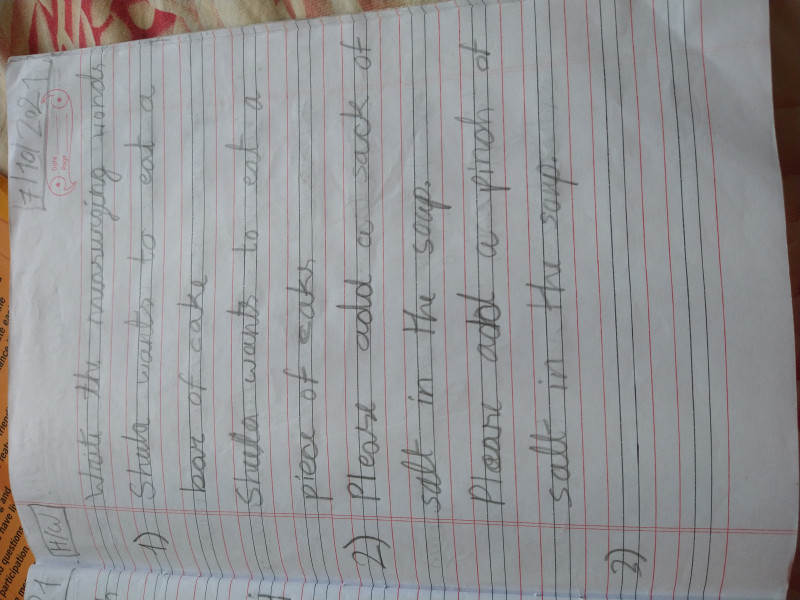 H/W
7/10/2021
Date
Page
Write the measurging words
1) Sheela wants to eat a
bar of cake
Sheela wants to eat a
piece of cake
2) Please add a sack of
salt in the soup.
Please add a pinch of
salt in the soup.
3)